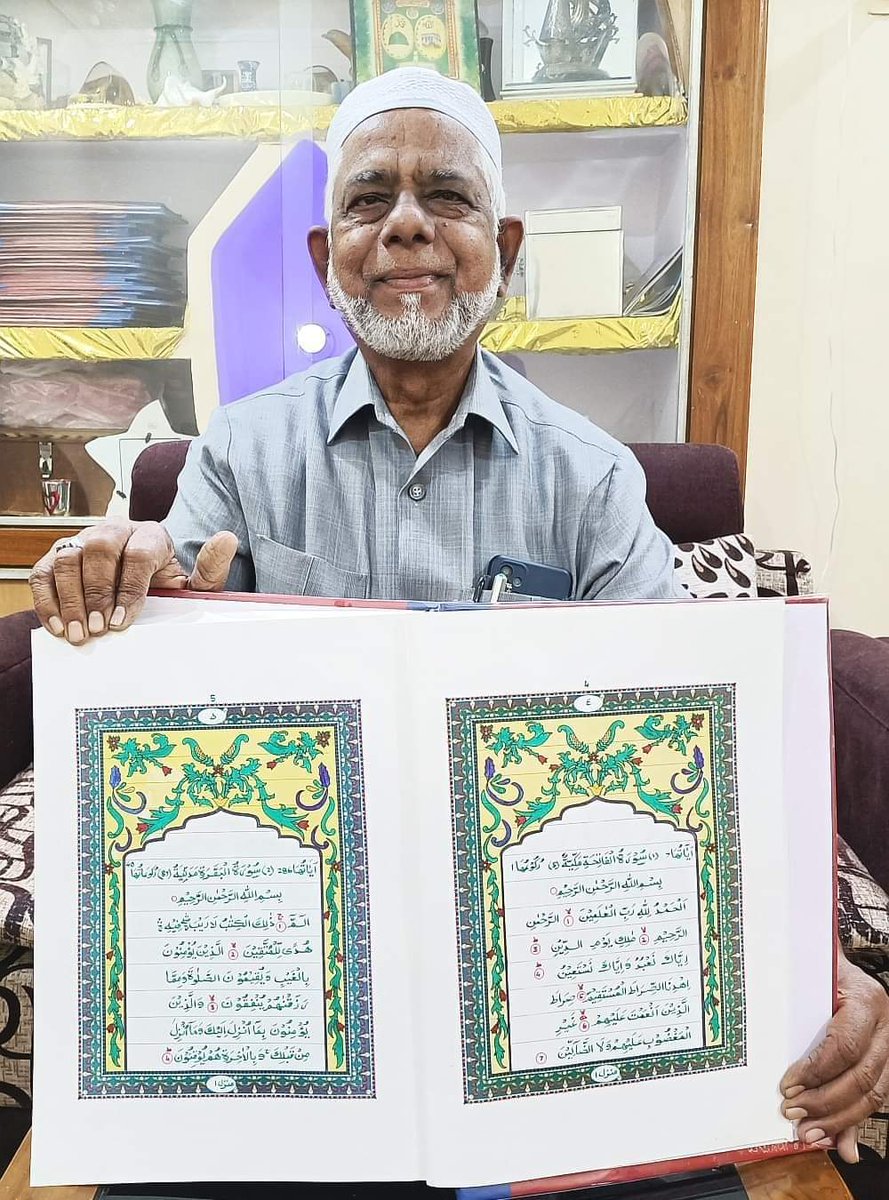 4
٤
اٰيَاتُهَا-٧ (١) سُوْرَةُ الْفَاتِحَةِ مَكِّيَّةٌ (٥) رُكُوْعُهَا ١
بِسْمِ اللّٰهِ الرَّحْمٰنِ الرَّحِيْمِ
اَلْحَمْدُ لِلّٰهِ رَبِّ الْعٰلَمِيْنَ ١ الرَّحْمٰنِ
الرَّحِيْمِ ٢ مٰلِكِ يَوْمِ الدِّيْنِ ٣
اِيَّاكَ نَعْبُدُ وَ اِيَّاكَ نَسْتَعِيْنُ ٤
اِهْدِنَا الصِّرَاطَ الْمُسْتَقِيْمَ ٥ صِرَاطَ
الَّذِيْنَ اَنْعَمْتَ عَلَيْهِمْ ٦ غَيْرِ
الْمَغْضُوْبِ عَلَيْهِمْ وَلَا الضَّآلِّيْنَ ٧
منزل ١
5
٥
اٰيَاتُهَا ٢٨٦ (٢) سُوْرَةُ الْبَقَرَةِ مَدَنِيَّةٌ (٨٧) رُكُوْعَاتُهَا ٤٠
بِسْمِ اللّٰهِ الرَّحْمٰنِ الرَّحِيْمِ
الٓمّٓ ١ ذٰلِكَ الْكِتٰبُ لَا رَيْبَ فِيْهِ
هُدًى لِّلْمُتَّقِيْنَ ٢ الَّذِيْنَ يُؤْمِنُوْنَ
بِالْغَيْبِ وَيُقِيْمُوْنَ الصَّلٰوةَ وَمِمَّا
رَزَقْنٰهُمْ يُنْفِقُوْنَ ٣ وَالَّذِيْنَ
يُؤْمِنُوْنَ بِمَآ اُنْزِلَ اِلَيْكَ وَمَآ اُنْزِلَ
مِنْ قَبْلِكَ وَبِالْاٰخِرَةِ هُمْ يُوْقِنُوْنَ ٤
منزل ١